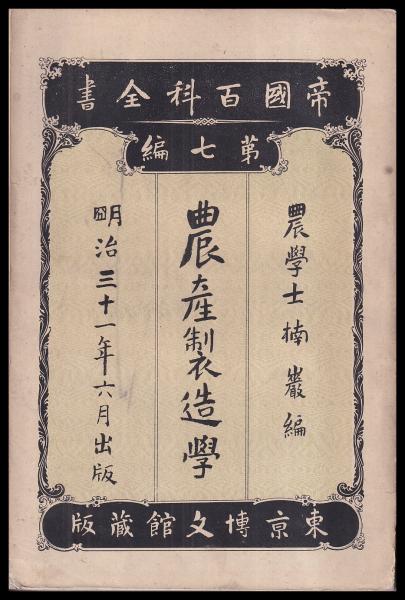 帝國百科全書
第七編
農學士楠巖編
農產製造學
明治三十一年六月出版
東京博文館藏版